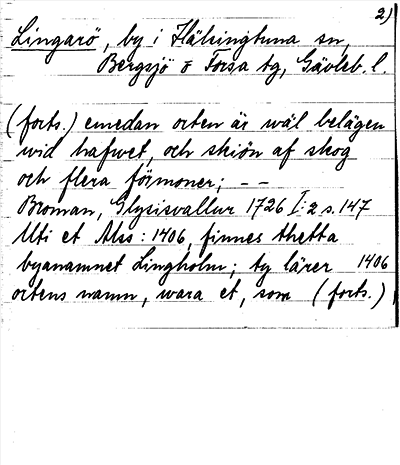 2)
Lingarö, by i Hälsingtuna sn,
Bergsjö o Forsa tg, Gävleb. l.
(forts.) emedan orten är wäl belägen
wid hafwet, och skiön af skog
och flera förmoner; - -
Broman, Glysisvallur 1726 I:2 s. 147
Uti et Mss: 1406, finnes thetta
byanamnet Lingholm; ty lärer 1406
ortens namn, wara et, som (forts.)